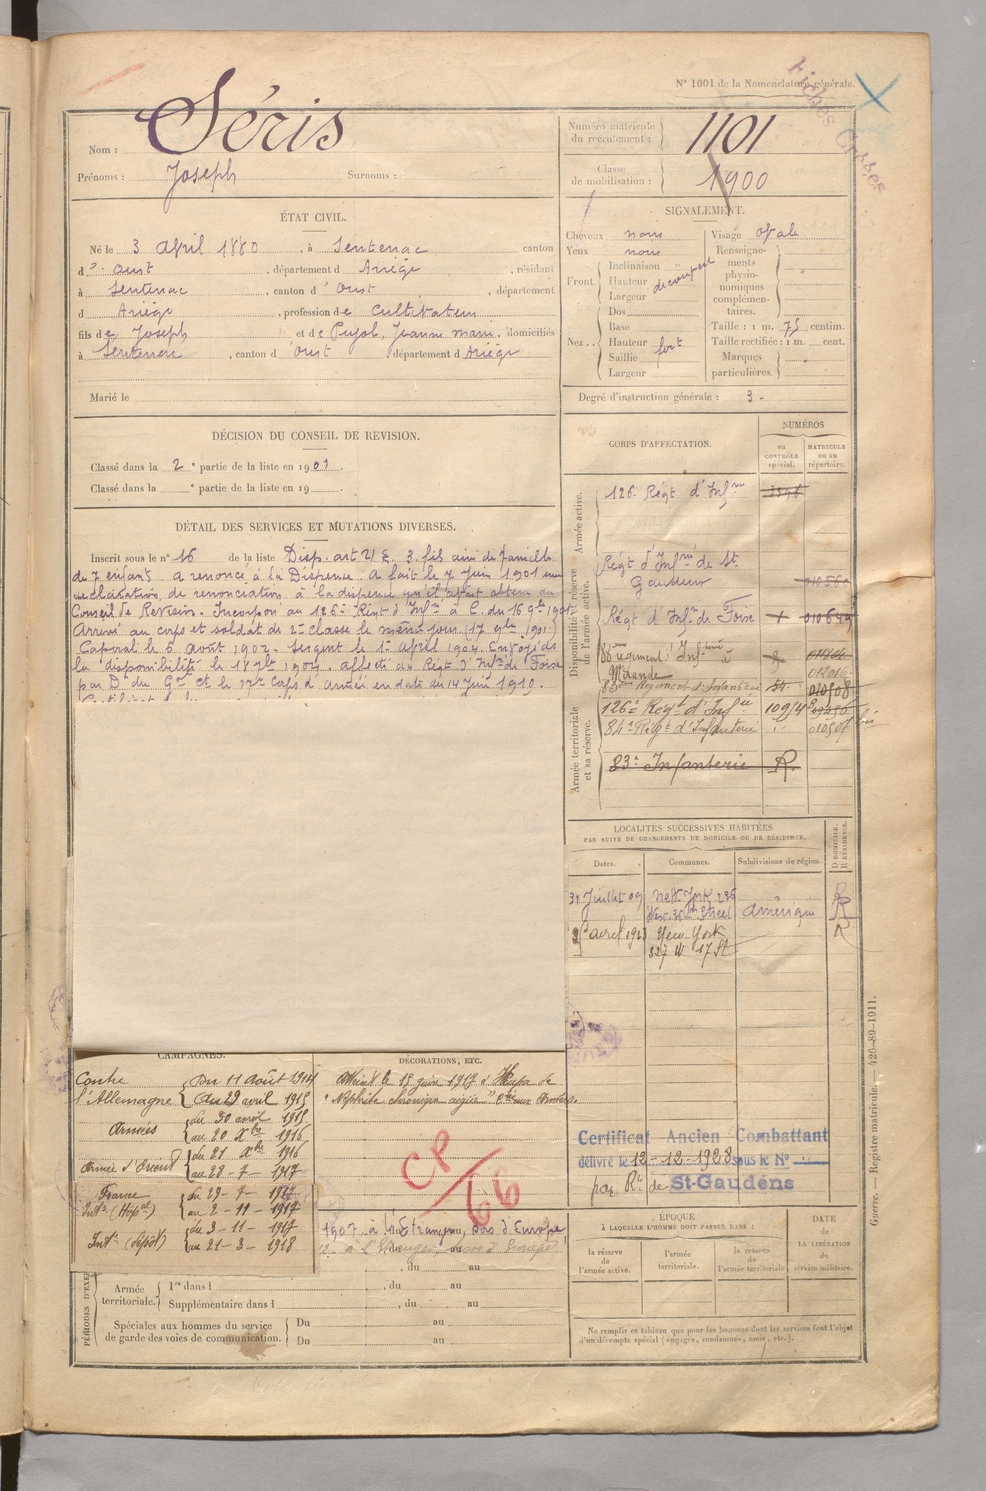 N° 1001 de la Nomenclature générale.
Fiches
Nom : Séris
Prénoms : Joseph Surnoms :
Numéro matricule du recrutement : 1101
Classe de mobilisation : 1900
ÉTAT CIVIL.
Né le 3 Avril 1880, à Sentenac canton
d'Oust, département d Ariège, résidant
à Sentenac, canton d'Oust, département
d Ariège, profession de Cultivateur
fils de Joseph et de Pujol, Jeanne Marie, domiciliés
à Sentenac, canton d'Oust, département d Ariège
Marié le
SIGNALEMENT.
Cheveux noirs
Yeux noirs
Front
Inclinaison "
Hauteur découvert
Largeur
Nez
Dos
Base
Hauteur fort
Saillie
Largeur
Visage ovale
Renseignements physionomiques complémentaires. "
Taille : 1 m. 75 centim.
Taille rectifiée : 1 m. cent.
Marques particulières.
Degré d'instruction générale : 3 -
DÉCISION DU CONSEIL DE REVISION.
Classé dans la 2e partie de la liste en 1901.
Classé dans la e partie de la liste en 19
DÉTAIL DES SERVICES ET MUTATIONS DIVERSES.
Inscrit sous le n° 16 de la liste Disp. art 21 § 3. fils ainé de famille
de 7 enfants a renoncé à la Dispense a fait le 7 Juin 1901 une
déclaration de renonciation à la dispense qu'il avait obtenu du
Conseil de Revision. Incorporé au 126e Régt d'Infrie à C. du 16 9bre 1901
Arrivé au corps et soldat de 2e classe le même jour (17 9bre 1901)
Caporal le 6 Août 1902. Sergent le 1er Avril 1904. Envoyé ds
la disponibilité le 18 7bre 1904. affecté au Régt d'Infie de Foix
par Don du Gal Ct le 17e Corps d'Armée en date du 14 Juin 1910.
CORPS D'AFFECTATION.
NUMÉROS
au CONTRÔLE spécial.
MATRICULE ou au répertoire.
Armée active.
126e Régt d'Infrie
Disponibilité et réserve de l'armée active.
Régt d'Infrie de St Gaudens
Régt d'Infrie de Foix 010649
88me régiment d'Infrie à Mirande
83me Régiment d'Infanterie 010508
Armée territoriale et sa réserve.
126e Régt d'Infie 10954
84e Régt d'Infanterie 010507 bis
83e Infanterie R.
LOCALITÉS SUCCESSIVES HABITÉES
PAR SUITE DE CHANGEMENTS DE DOMICILE OU DE RÉSIDENCE.
D DOMICILE.
R RÉSIDENCE.
Dates. Communes. Subdivisions de région.
31 Juillet 09 New-York 236 West. 38th Street Amérique R
avril 1923 New-York 327 W 17 St R
CAMPAGNES.
Contre l'Allemagne
Du 11 août 1914
Au 29 avril 1915
Armées
du 30 avril 1915
au 20 Xbre 1916
Armée d'Orient
du 21 Xbre 1916
au 28-7-1917
France Intr (Hôpal)
du 29-7-1917
au 2-11-1917
Intr (dépôt)
du 3-11-1917
au 21-3-1918
DÉCORATIONS, ETC.
Atteint le 15 juin 1917 d'
"Néphrite chronique aigüe"
CP/66
Certificat Ancien Combattant
délivré le 12-12-1928 sous le N°
par Rt de St-Gaudens
1907, à l'Etranger, hors d'Europe
, du au
PÉRIODES D'EXER
Armée territoriale.
1re dans l , du au
Supplémentaire dans l , du au
Spéciales aux hommes du service de garde des voies de communication.
Du au
Du au
ÉPOQUE
À LAQUELLE L'HOMME DOIT PASSER DANS :
la réserve de l'armée active.
l'armée territoriale.
la réserve de l'armée territoriale
DATE de LA LIBÉRATION du service militaire.
Ne remplir ce tableau que pour les hommes dont les services font l'objet
d'un décompte spécial (engagés, condamnés, omis, etc.).
Guerre. — Registre matricule. — 426-89-1911.